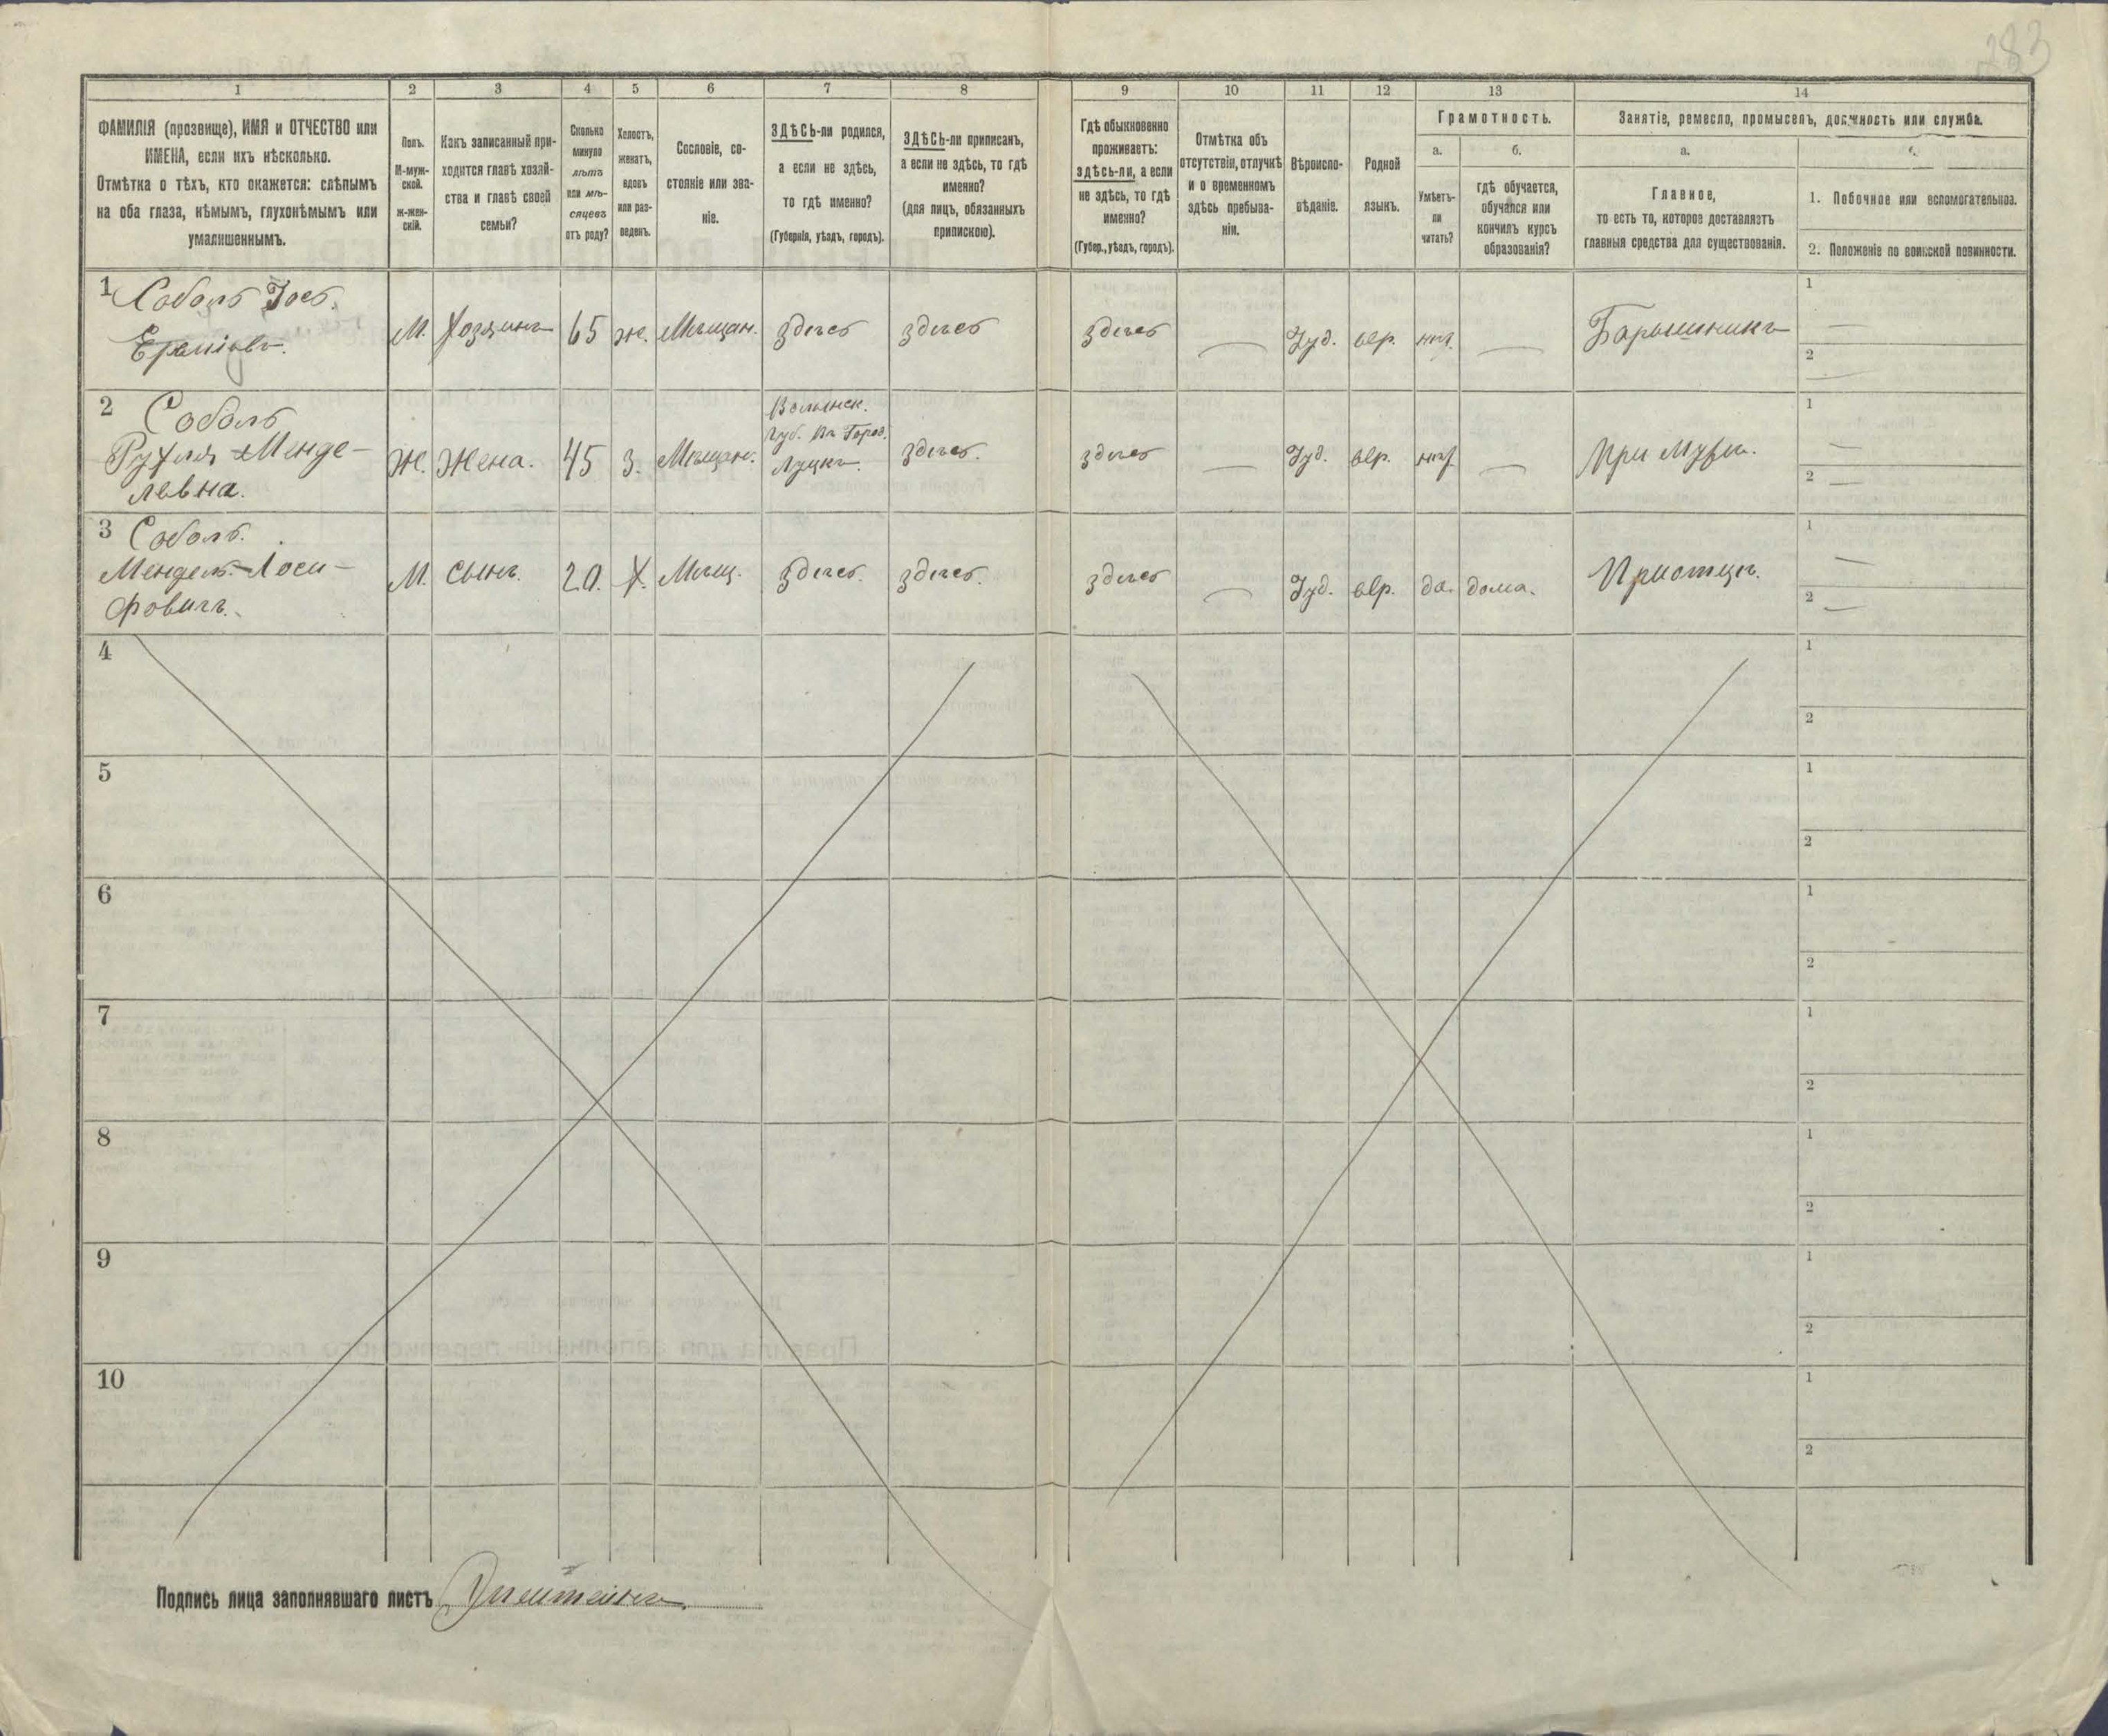 283
1
2
3
4
5
6
7
8
9
10
11
12
13
14
ФАМИЛІЯ (прозвище), ИМЯ и ОТЧЕСТВО или
ИМЕНА, если ихъ нѣсколько.
Отмѣтка о тѣхъ, кто окажется: слѣпымъ
на оба глаза, нѣмымъ, глухонѣмымъ или
умалишеннымъ.
Полъ.
М-муж-
ской.
ж-жен-
скій.
Какъ записанный при-
ходится главѣ хозяй-
ства и главѣ своей
семьи?
Сколько
минуло
лѣтъ
или мѣ-
сяцевъ
отъ роду?
Холостъ,
женатъ,
вдовъ
или раз-
веденъ.
Сословіе, со-
стояніе или зва-
ніе.
ЗДѢСЬ-ли родился,
а если не здѣсь,
то гдѣ именно?
(Губернія, уѣздъ, городъ).
ЗДѢСЬ-ли приписанъ,
а если не здѣсь, то гдѣ
именно?
(для лицъ, обязанныхъ
припискою).
Гдѣ обыкновенно
проживаетъ:
здѣсь-ли, а если
не здѣсь, то гдѣ
именно?
(Губер., уѣздъ, городъ).
Отмѣтка объ
отсутствіи, отлучкѣ
и о временномъ
здѣсь пребыва-
ніи.
Вѣроиспо-
вѣданіе.
Родной
языкъ.
Грамотность.
а.
б.
Умѣетъ-
ли
читать?
гдѣ обучается,
обучался или
кончилъ курсъ
образованія?
Занятіе, ремесло, промыселъ, должность или служба.
а.
Главное,
то есть то, которое доставляетъ
главныя средства для существованія.
1. Побочное или вспомогательное.
2. Положеніе по воинской повинности.
1 Соболь Іос.
М. Хозяинъ 65 ж. Мѣщан. здѣсь здѣсь здѣсь — Іуд. евр. нѣт. — Барышникъ
1 —
2 —
2 Соболь
Рухля Менде-
левна.
Ж. Жена. 45 З. Мѣщан.
Волынск.
Губ. Въ Город.
Луцкъ.
здѣсь. здѣсь — Іуд. евр. нѣт. — При Мужѣ.
1 —
2 —
3 Соболь.
Мендель Лоси-
фовичъ.
М. Сынъ. 20. Х. Мѣщ. здѣсь. здѣсь. здѣсь — Іуд. евр. да. дома. При отцѣ.
1 —
2 —
4
1
2
5
1
2
6
1
2
7
1
2
8
1
2
9
1
2
10
1
2
Подпись лица заполнявшаго листъ